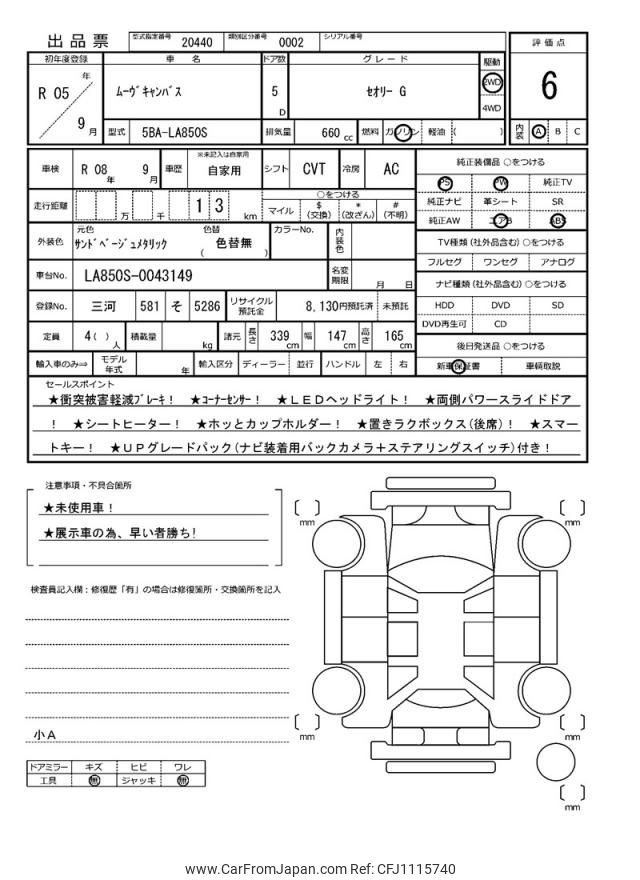 出品票 型式指定番号 20440 類別区分番号 0002 シリアル番号
評価点
6
内装 A B C
初年度登録 車名 ドア数 グレード 駆動
R 05年 9月 ムーヴキャンバス 5D セオリー G 2WD 4WD
型式 5BA-LA850S 排気量 660cc 燃料 ガソリン 軽油 ( )
車検 R 08年 9月 車歴 ※未記入は自家用 自家用 シフト CVT 冷房 AC
走行距離 万 千 13 km ○をつける
マイル $(交換) *(改ざん) #(不明)
外装色 元色 サンドベージュメタリック 色替 ( 色替無 ) カラーNo. 内装色
車台No. LA850S-0043149 名変期限 月 日
登録No. 三河 581 そ 5286 リサイクル預託金 8,130円預託済 未預託
定員 4( )人 積載量 kg 諸元 長さ 339cm 幅 147cm 高さ 165cm
輸入車のみ⇒ モデル年式 年 輸入区分 ディーラー 並行 ハンドル 左 右
純正装備品 ○をつける
PS PW 純正TV
純正ナビ 革シート SR
純正AW エアB ABS
TV種類(社外品含む)○をつける
フルセグ ワンセグ アナログ
ナビ種類(社外品含む)○をつける
HDD DVD SD
DVD再生可 CD
後日発送品 ○をつける
新車保証書 車輌取説
セールスポイント
★衝突被害軽減ブレーキ! ★コーナーセンサー! ★LEDヘッドライト! ★両側パワースライドドア
! ★シートヒーター! ★ホッとカップホルダー! ★置きラクボックス(後席)! ★スマー
トキー! ★UPグレードパック(ナビ装着用バックカメラ+ステアリングスイッチ)付き!
注意事項・不具合箇所
★未使用車!
★展示車の為、早い者勝ち!
検査員記入欄:修復歴「有」の場合は修復箇所・交換箇所を記入
小A
ドアミラー キズ ヒビ ワレ
工具 無 ジャッキ 無
mm mm
mm mm
mm
www.CarFromJapan.com Ref: CFJ1115740